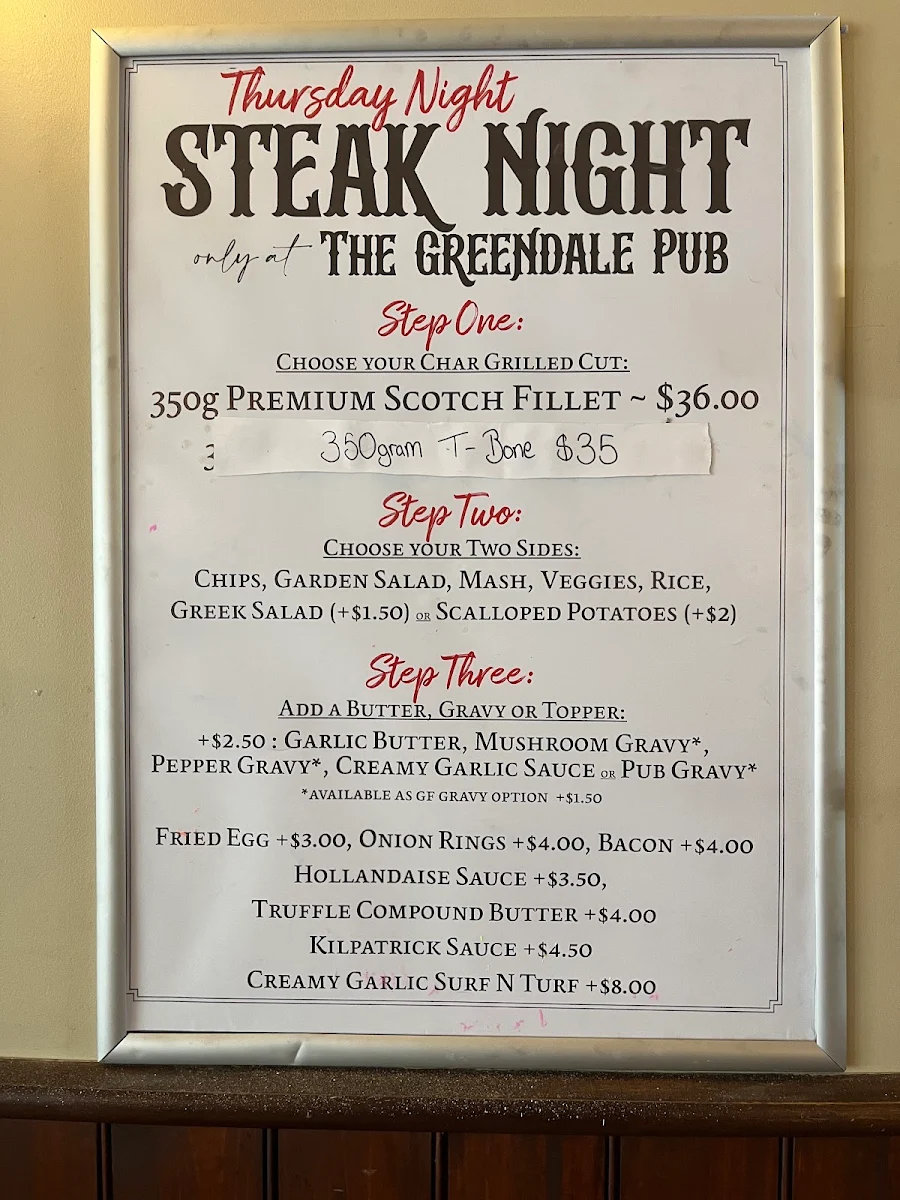 Thursday Night
STEAK NIGHT
only at THE GREENDALE PUB
Step One:
CHOOSE YOUR CHAR GRILLED CUT:
350g PREMIUM SCOTCH FILLET ~ $36.00
350gram T-Bone $35
Step Two:
CHOOSE YOUR TWO SIDES:
CHIPS, GARDEN SALAD, MASH, VEGGIES, RICE,
GREEK SALAD (+$1.50) OR SCALLOPED POTATOES (+$2)
Step Three:
ADD A BUTTER, GRAVY OR TOPPER:
+$2.50 : GARLIC BUTTER, MUSHROOM GRAVY*,
PEPPER GRAVY*, CREAMY GARLIC SAUCE OR PUB GRAVY*
*AVAILABLE AS GF GRAVY OPTION +$1.50
FRIED EGG +$3.00, ONION RINGS +$4.00, BACON +$4.00
HOLLANDAISE SAUCE +$3.50,
TRUFFLE COMPOUND BUTTER +$4.00
KILPATRICK SAUCE +$4.50
CREAMY GARLIC SURF N TURF +$8.00